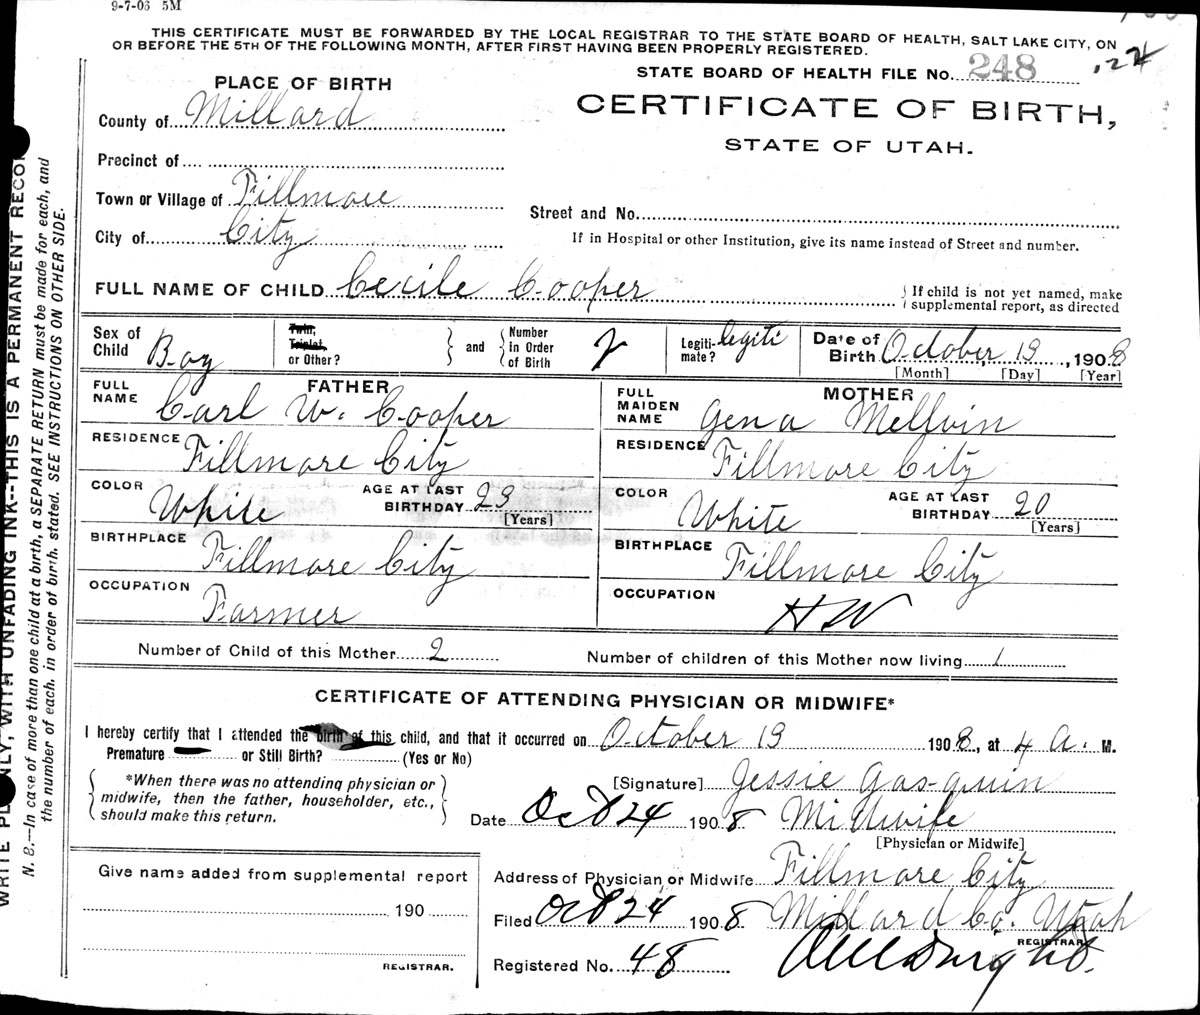 9-7-06 5M
THIS CERTIFICATE MUST BE FORWARDED BY THE LOCAL REGISTRAR TO THE STATE BOARD OF HEALTH, SALT LAKE CITY, ON
OR BEFORE THE 5TH OF THE FOLLOWING MONTH, AFTER FIRST HAVING BEEN PROPERLY REGISTERED.
STATE BOARD OF HEALTH FILE No. 248
PLACE OF BIRTH
CERTIFICATE OF BIRTH,
STATE OF UTAH.
County of Millard
Precinct of
Town or Village of Fillmore
City of City
Street and No.
If in Hospital or other Institution, give its name instead of Street and number.
FULL NAME OF CHILD Cecile Cooper
If child is not yet named, make
supplemental report, as directed
Sex of Child Boy
Twin, Triplet, or Other?
and
Number in Order of Birth 2
Legitimate? legiti
Date of Birth October 19, 1908
[Month] [Day] [Year]
FATHER
FULL NAME Carl W. Cooper
RESIDENCE Fillmore City
COLOR White
AGE AT LAST BIRTHDAY 23
[Years]
BIRTHPLACE Fillmore City
OCCUPATION Farmer
MOTHER
FULL MAIDEN NAME Gena Mellvin
RESIDENCE Fillmore City
COLOR White
AGE AT LAST BIRTHDAY 20
[Years]
BIRTHPLACE Fillmore City
OCCUPATION HW
Number of Child of this Mother 2
Number of children of this Mother now living 1
CERTIFICATE OF ATTENDING PHYSICIAN OR MIDWIFE*
I hereby certify that I attended the birth of this child, and that it occurred on October 19 1908, at 4 A. M.
Premature or Still Birth? (Yes or No)
*When there was no attending physician or
midwife, then the father, householder, etc.,
should make this return.
[Signature] Jessie Gasquin
Date Oct 24 1908 Midwife
[Physician or Midwife]
Give name added from supplemental report
190
REGISTRAR.
Address of Physician or Midwife Fillmore City
Filed Oct 24 1908 Millard Co. Utah
REGISTRAR
Registered No. 48
WRITE PLAINLY, WITH UNFADING INK--THIS IS A PERMANENT RECO
N. B.--In case of more than one child at a birth, a SEPARATE RETURN must be made for each, and
the number of each, in order of birth, stated. SEE INSTRUCTIONS ON OTHER SIDE.